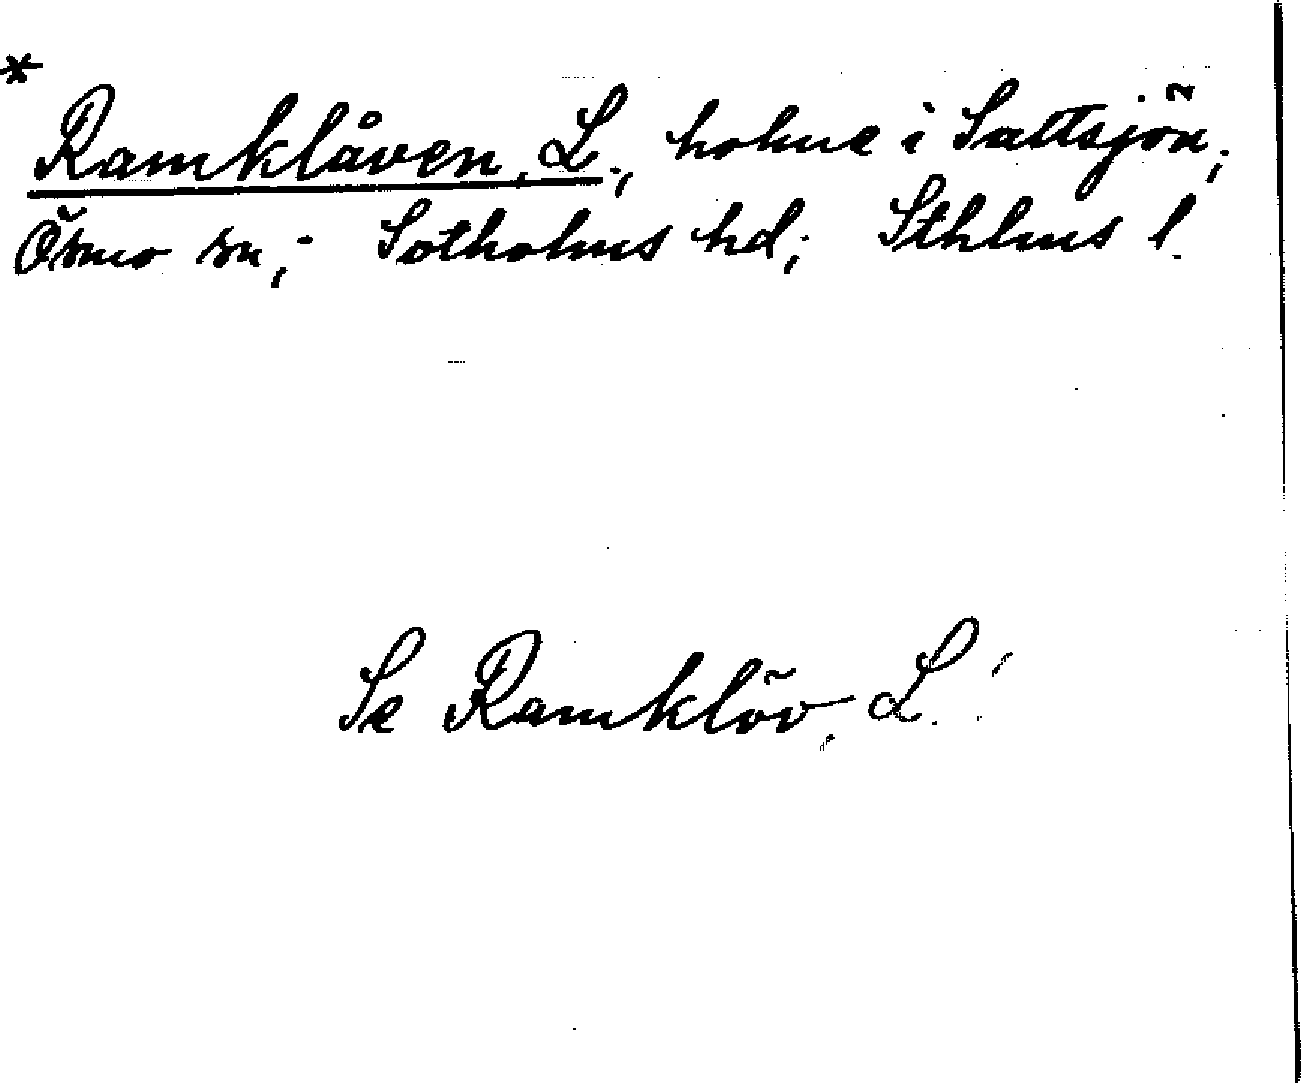 *
Ramklåven, L.; holme i Saltsjön;
Ösmo sn; Sotholms hd; Sthlms l.
Se Ramklöv, L.!